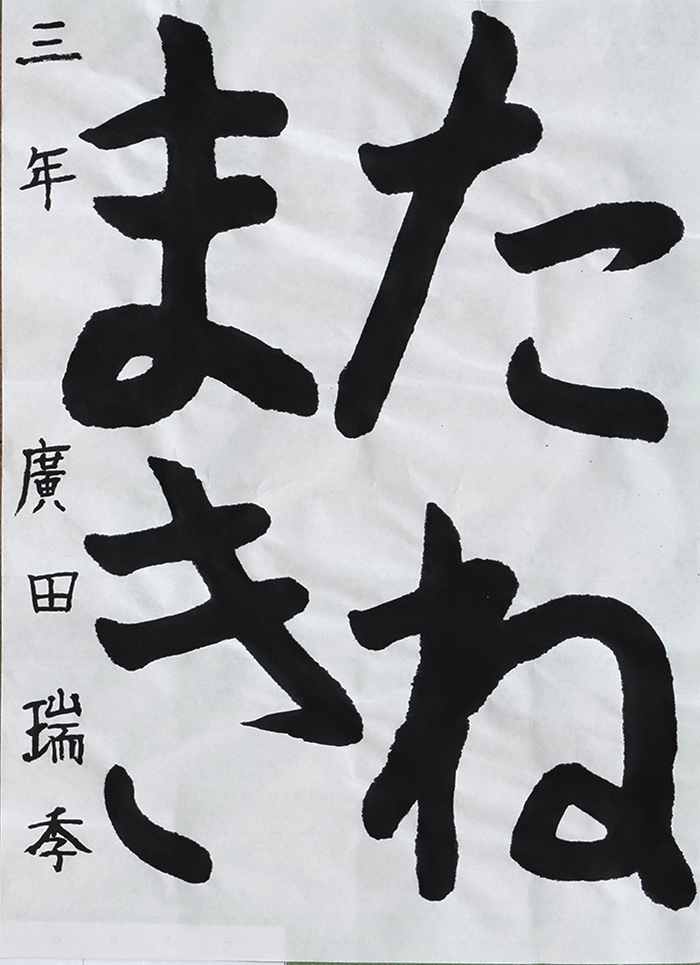 たね
まき
三年 廣田瑞季